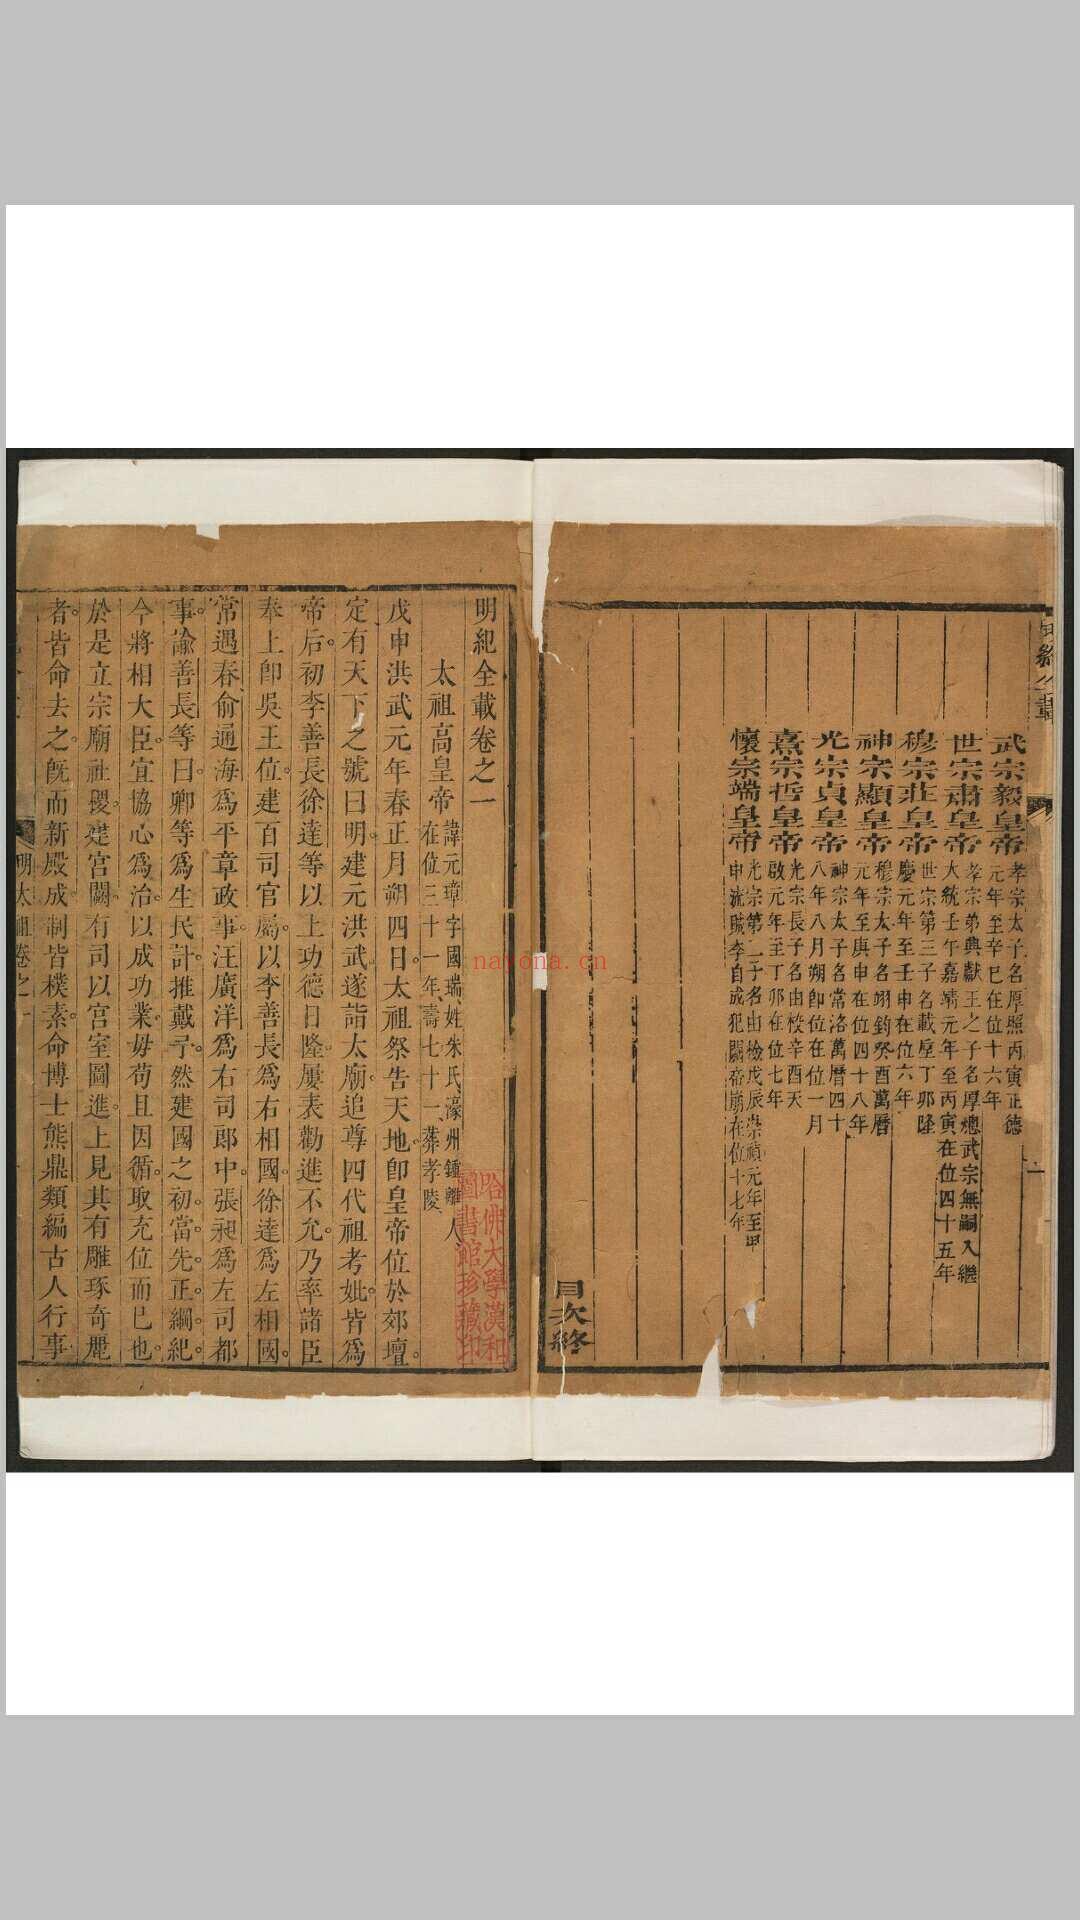 明紀全載
武宗毅皇帝
孝宗太子名厚照丙寅正德
元年至辛巳在位十六年
世宗肅皇帝
孝宗弟興獻王之子名厚熜武宗無嗣入繼
大統壬午嘉靖元年至丙寅在位四十五年
穆宗莊皇帝
世宗第三子名載垕丁卯隆
慶元年至壬申在位六年
神宗顯皇帝
穆宗太子名翊鈞癸酉萬曆
元年至庚申在位四十八年
光宗貞皇帝
神宗太子名常洛萬曆四十
八年八月朔卽位在位一月
熹宗悊皇帝
光宗長子名由校辛酉天
啟元年至丁卯在位七年
懷宗端皇帝
光宗第二子名由檢戊辰崇禎元年至甲
申流賊李自成犯闕帝崩在位十七年
目次終
明紀全載卷之一
太祖高皇帝
諱元璋字國瑞姓朱氏濠州鍾離人
在位三十一年壽七十一葬孝陵
戊申洪武元年春正月朔四日太祖祭告天地卽皇帝位於郊壇。
定有天下之號曰明建元洪武遂詣太廟追尊四代祖考妣皆爲
帝后。初李善長徐達等以上功德日隆屢表勸進不允乃率諸臣
奉上卽吳王位建百司官屬以李善長爲右相國徐達爲左相國。
常遇春俞通海爲平章政事汪廣洋爲右司郎中張昶爲左司都
事諭善長等曰卿等爲生民計推戴予然建國之初當先正綱紀。
今將相大臣宜協心爲治以成功業毋苟且因循取充位而已也。
於是立宗廟社稷建宮闕有司以宮室圖進上見其有雕琢奇麗
者皆命去之旣而新殿成制皆樸素命博士熊鼎類編古人行事
明太祖卷之一
哈佛大學漢和
圖書館珍藏印
nayona.cn